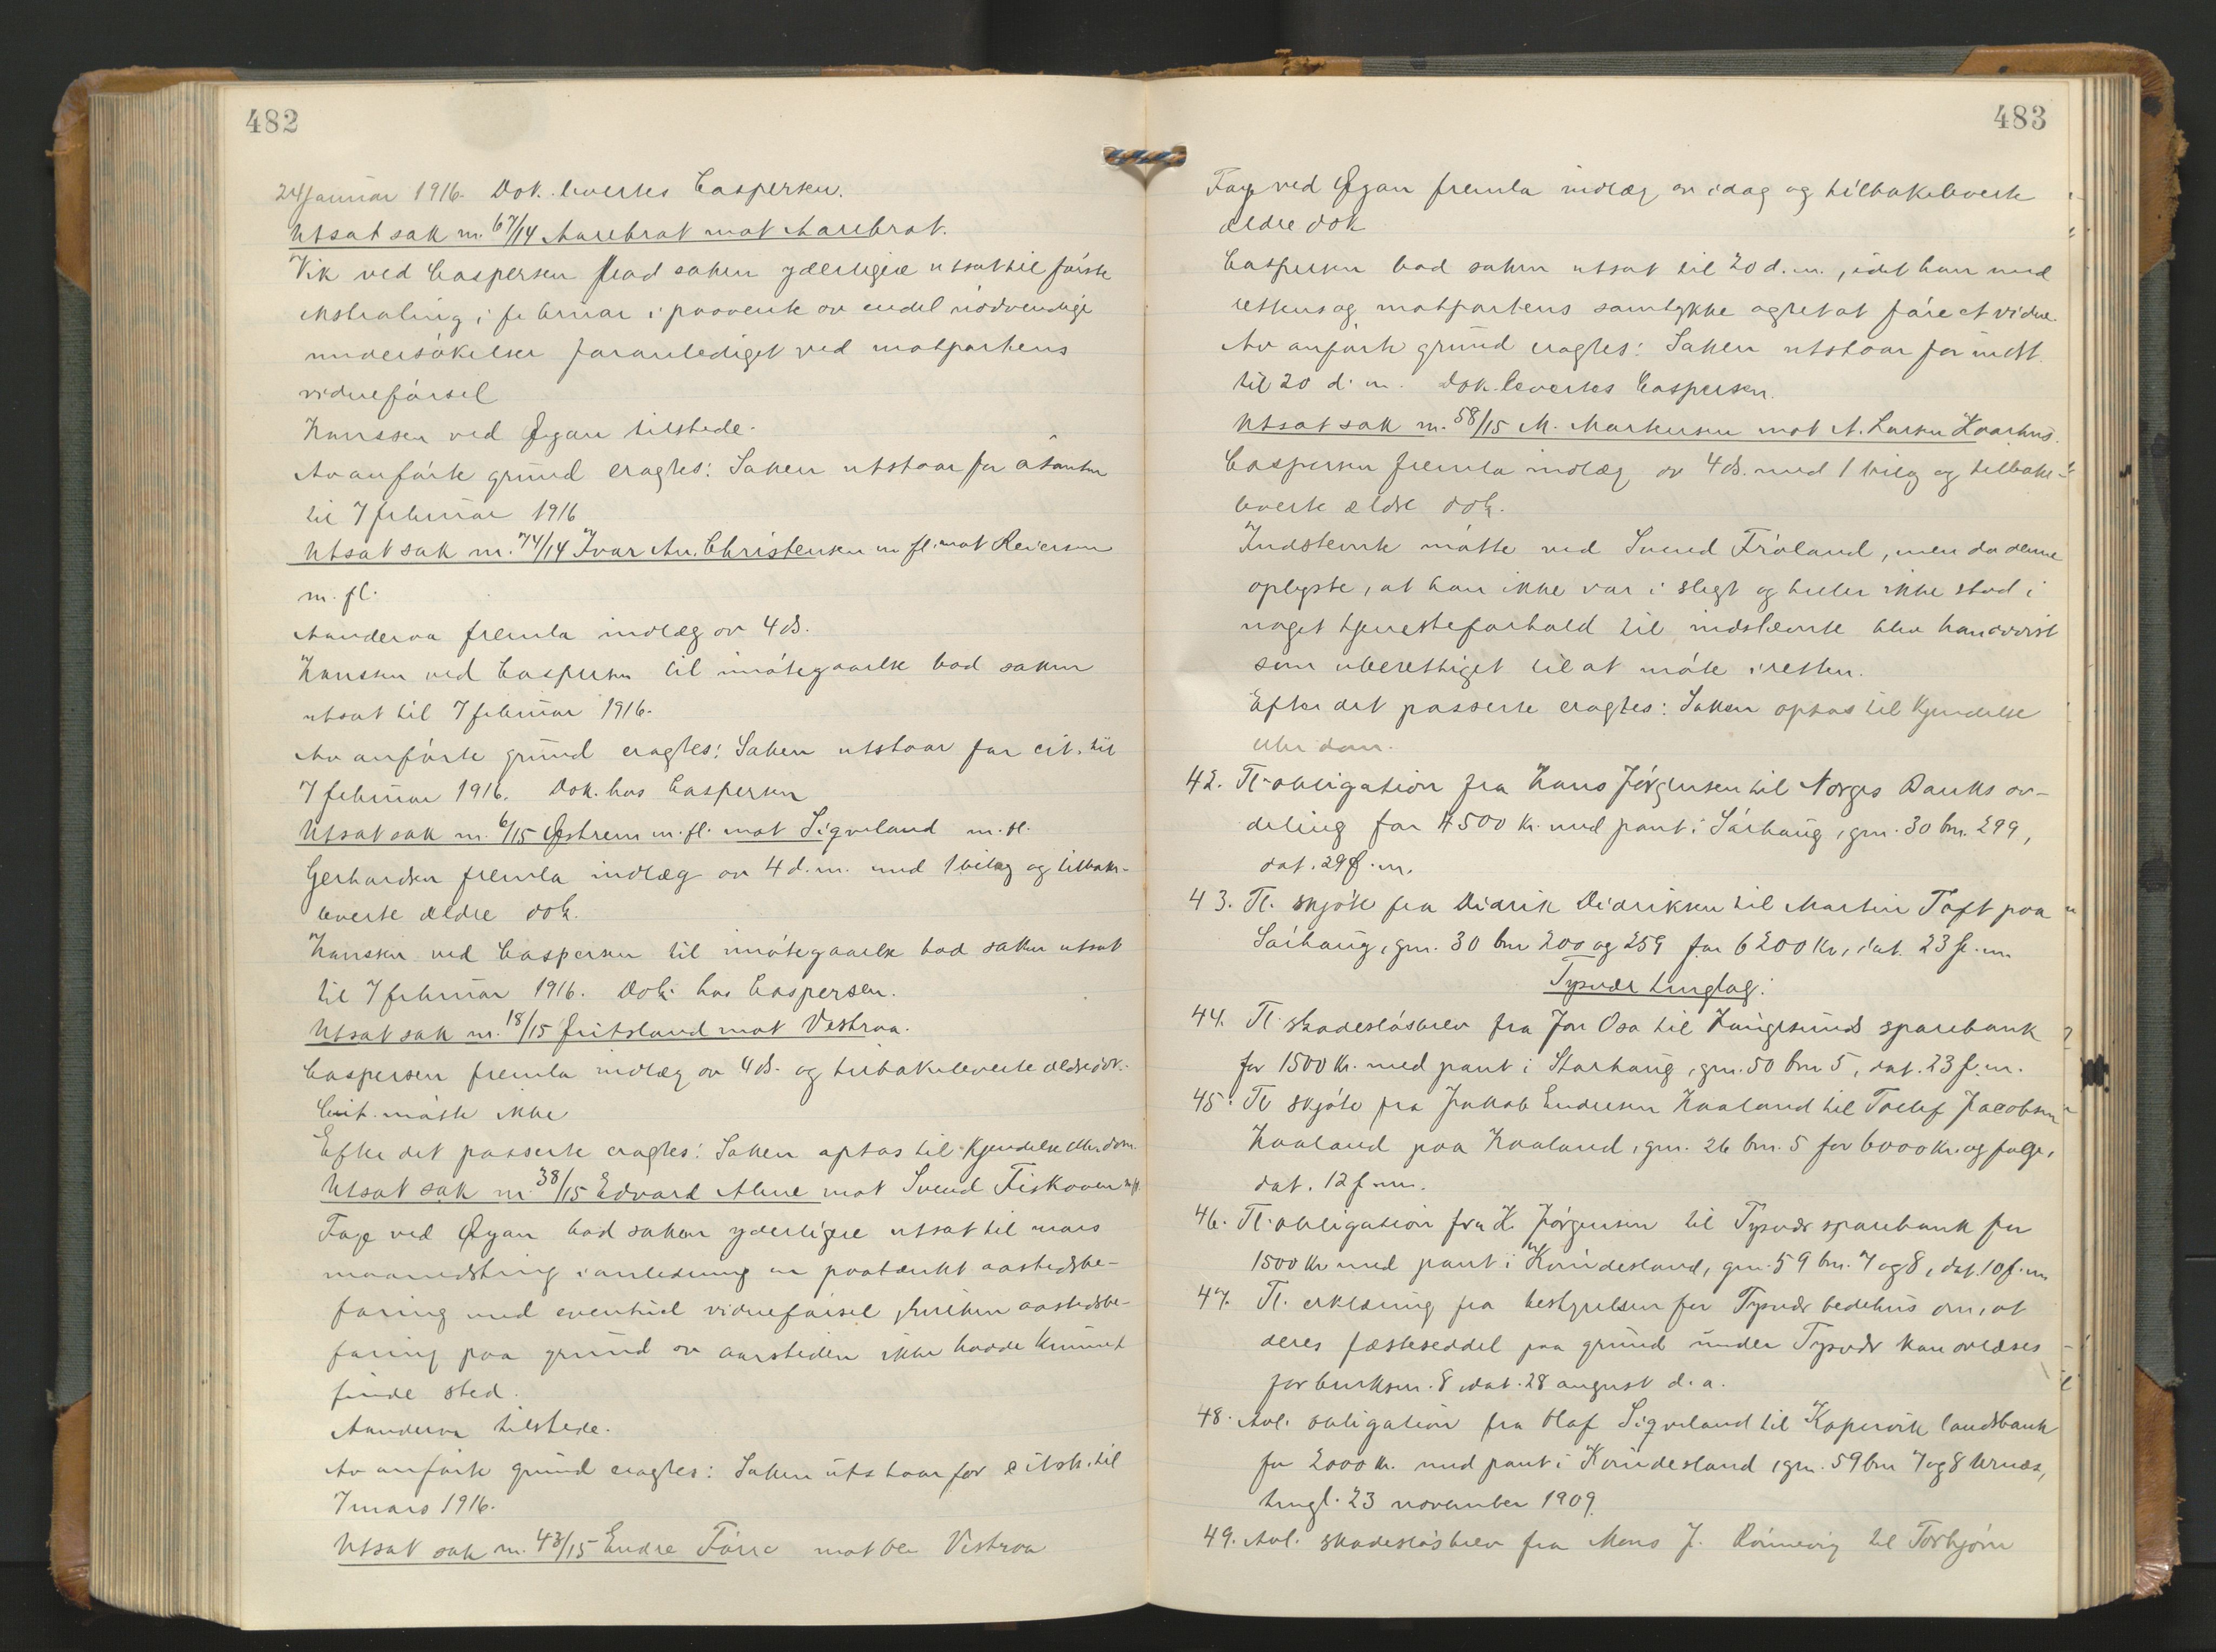 482
24 januar 1916. Dok. levertes Caspersen.
Utsat sak nr. 67/14 Aarebrot mot Aarebrot.
Vik ved Caspersen bad saken yderligere utsat til første
ekstrating i februar i paavente av endel nødvendige
undersøkelser foranlediget ved motpartens
vidneførsel
Hanssen ved Øgan tilstede.
Av anførte grund eragtes: Saken utstaar for
til 7 februar 1916
Utsat sak nr. 74/14 Ivar An. Christensen m fl. mot Reiersen
m. fl.
Aanderaa fremla indlæg av 4 ds.
Hanssen ved Caspersen til imøtegaaelse bad saken
utsat til 7 februar 1916.
Av anførte grund eragtes: Saken utstaar for cit. til
7 februar 1916. Dok. hos Caspersen
Utsat sak nr. 6/15 Østrem m. fl. mot Sigveland m. fl.
Gerhardsen fremla indlæg av 4 d. m. med 1 bilag og tilbake-
leverte ældre dok.
Hanssen ved Caspersen til imøtegaaelse bad saken utsat
til 7 februar 1916. Dok. hos Caspersen.
Utsat sak nr. 18/15 Fritsland mot Vestraa.
Caspersen fremla indlæg av 4 ds. og tilbakeleverte ældre dok.
Cit. møtte ikke
Efter det passerte eragtes: Saken optas til kjendelse eller dom.
Utsat sak nr. 38/15 Edvard Alne mot Svend Fiskaaen m fl.
Fage ved Øgan bad saken yderligere utsat til mars
maanedsting i anledning en paatænkt aastedsbe-
faring med eventuel vidneførsel, hvilken aastedsbe-
faring paa grund av aarstiden ikke hadde kunnet
finde sted.
Aanderaa tilstede.
Av anførte grund eragtes: Saken utstaar for citsk. til
7 mars 1916.
Utsat sak nr. 43/15 Endre Førre mot Vestraa
483
Fage ved Øgan fremla indlæg av idag og tilbakeleverte
ældre dok
Caspersen bad saken utsat til 20 d. m., idet han med
rettens og motpartens samtykke agtet at føre et vidne.
Av anførte grund eragtes: Saken utstaar for indst.
til 20 d. m. Dok. levertes Caspersen.
Utsat sak nr. 58/15 M. Markusen mot A. Larsen Kvarhus.
Caspersen fremla indlæg av 4 ds. med 1 bilag og tilbake-
leverte ældre dok.
Indstevnte møtte ved Svend Frøland, men da denne
oplyste, at han ikke var i slegt og heller ikke stod i
noget tjenesteforhold til indstevnte blev han avvist
som uberettiget til at møte i retten.
Efter det passerte eragtes: Saken optas til kjendelse
eller dom.
42. Tl. obligation fra Hans Jørgensen til Norges Banks av-
deling for 4500 kr. med pant i Sørhaug, gnr. 30 bnr. 299,
dat. 29 f. m.
43. Tl. skjøte fra Didrik Didriksen til Martin Toft paa
Sørhaug, gnr. 30 bnr 200 og 259 for 6200 kr, dat. 23 f. m.
Tysvær tinglag:
44. Tl. skadesløsbrev fra Jon Osa til Haugesunds sparebank
for 1500 kr. med pant i Storhaug, gnr. 50 bnr 5, dat. 23 f. m.
45. Tl skjøte fra Jakob Endresen Haaland til Tollef Jacobsen
Haaland paa Haaland, gnr. 26 bnr. 5 for 6000 kr. og følge,
dat. 12 f. m.
46. Tl. obligation fra H. Jørgensen til Tysvær sparebank for
1500 kr med pant i Kvindesland, gnr. 59 bnr. 7 og 8, dat. 10 f. m
47. Tl. erklæring fra bestyrelsen for Tysvær bedehus om, at
deres fæsteseddel paa grund under Tysvær kan avlæses
for bruksnr. 8, dat. 28 august d. a.
48. Avl. obligation fra Olaf Sigveland til Kopervik landsbank
for 2000 kr. med pant i Kvindesland, gnr. 59 bnr 7 og 8
tingl. 23 november 1909.
49. Avl. skadesløsbrev fra Mons J. Rønnevig til Torbjørn